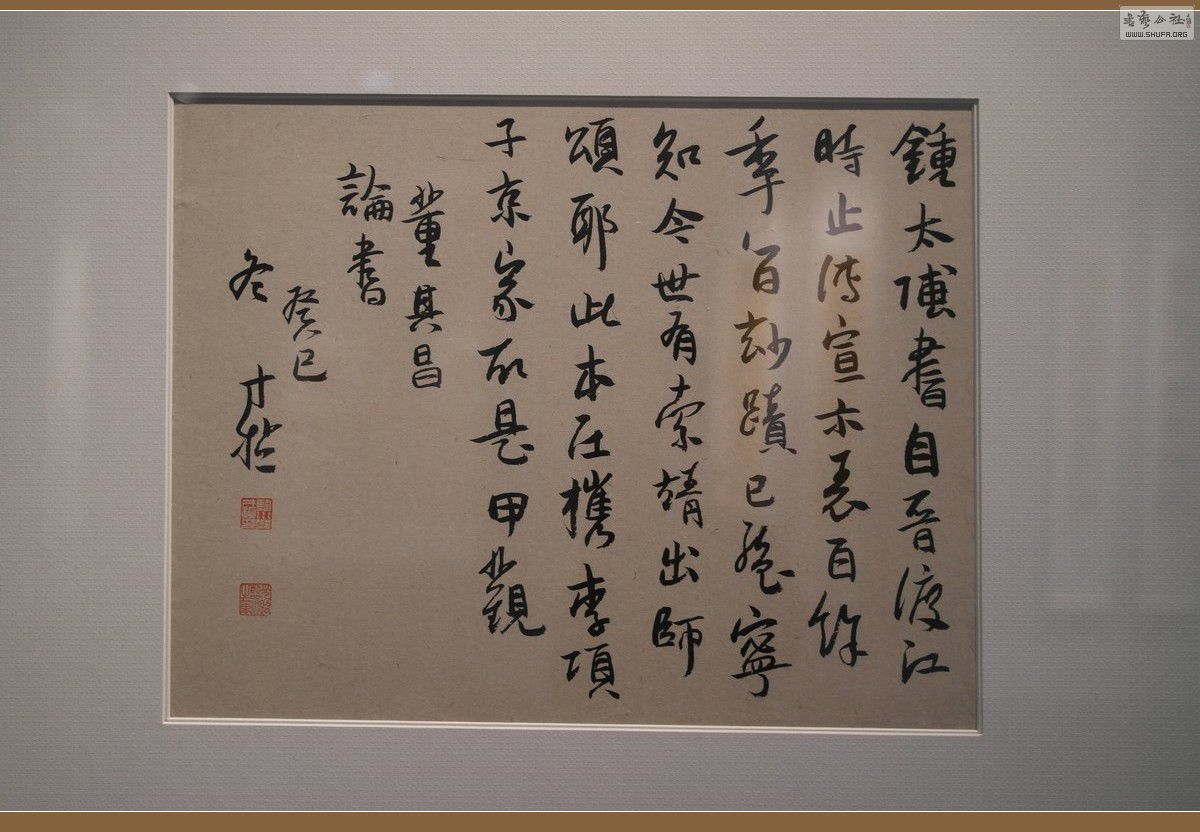 鍾太傅書自晉渡江
時止傳宣示表百餘
秊間妙蹟已絕寧
知今世有索靖出師
頌耶此本在檇李項
子京家故是甲觀
董其昌
論書
癸巳
冬 才
書藝公社
WWW.SHUFA.ORG